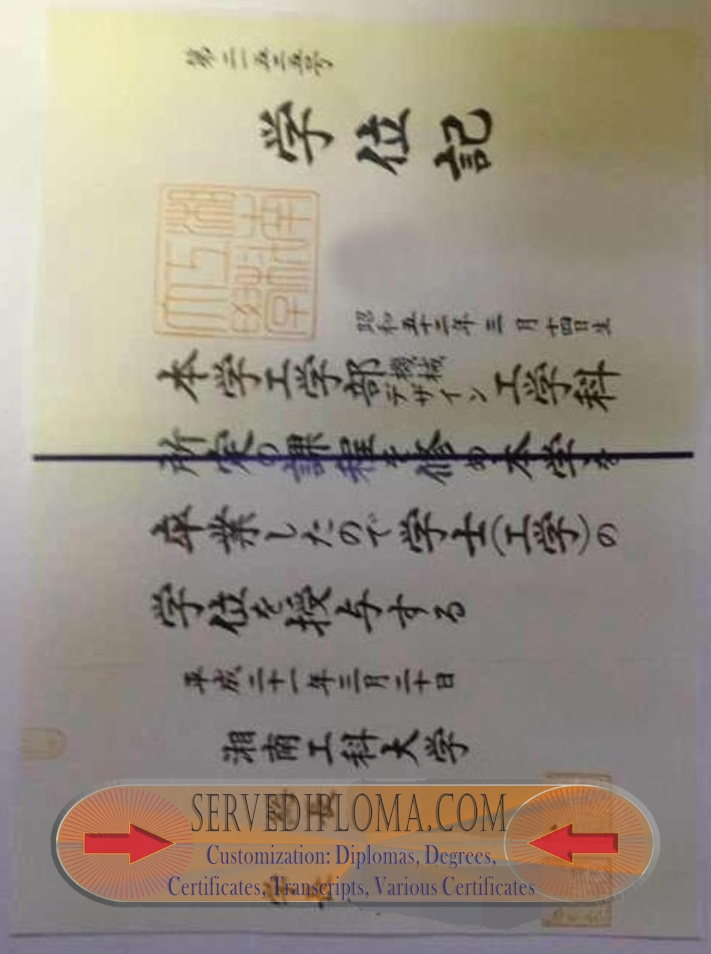 学位記
昭和 年三月十四日生
本学工学部機械デザイン工学科
所定の課程を修め本学を
卒業したので学士(工学)の
学位を授与する
平成二十一年三月二十日
湘南工科大学
SERVEDIPLOMA.COM
Customization: Diplomas, Degrees,
Certificates, Transcripts, Various Certificates
学長